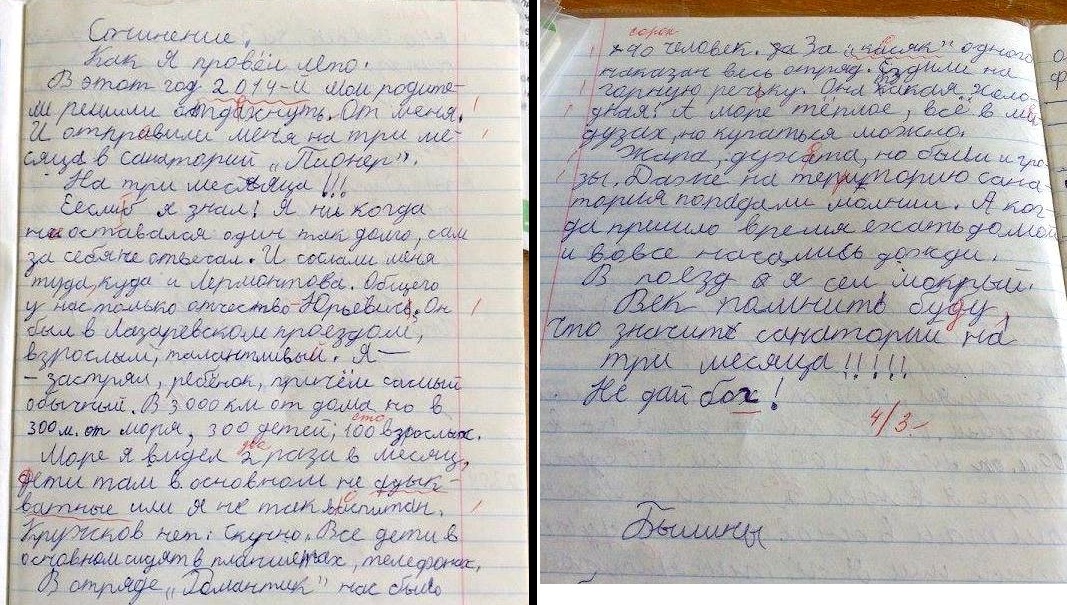 Сочинение.
Как Я провёл лето.
В этот год 2014-й мои родите-
ли решили отдахнуть. От меня.
И отправили меня на три ме-
сяца в санаторий „Пионер".
На три месяца!!!
Еесли б я знал! Я ни когда
не оставался один так долго, сам
за себя не отвечал. И сослали меня
туда, куда и Лермонтова. Общего
у нас только отчество - Юрьевич. Он
был в Лазаревском проездом,
взрослый, талантливый. Я—
- застрял, ребёнок, причём самый
обычный. В 3000 км от дома но в
сто
300 м. от моря, 300 детей, 100 взрослых.
два
Море я видел 2 раза в месяц,
дети там в основном не адык-
ватные или я не так воспитан.
Кружков нет. Скучно. Все дети в
основном сидят в планшетах, телефонах.
В отряде „Романтик" нас было
сорок
40 человек. За „касяк" одного
наказан весь отряд. Ездили на
горную речьку. Она такая холо-
дная! А море тёплое, всё в ме
дузах, но купаться можно.
Жара, духота, но были и гро-
зы. Даже на територию сана-
тория попадали молнии. А ког-
да пришло время ехать домой
и вовсе начались дожди.
В поезд я сел мокрый.
Век помнить буду,
что значит санаторий на
три месяца!!!!!
Не дай бох!
4/3-
Былины